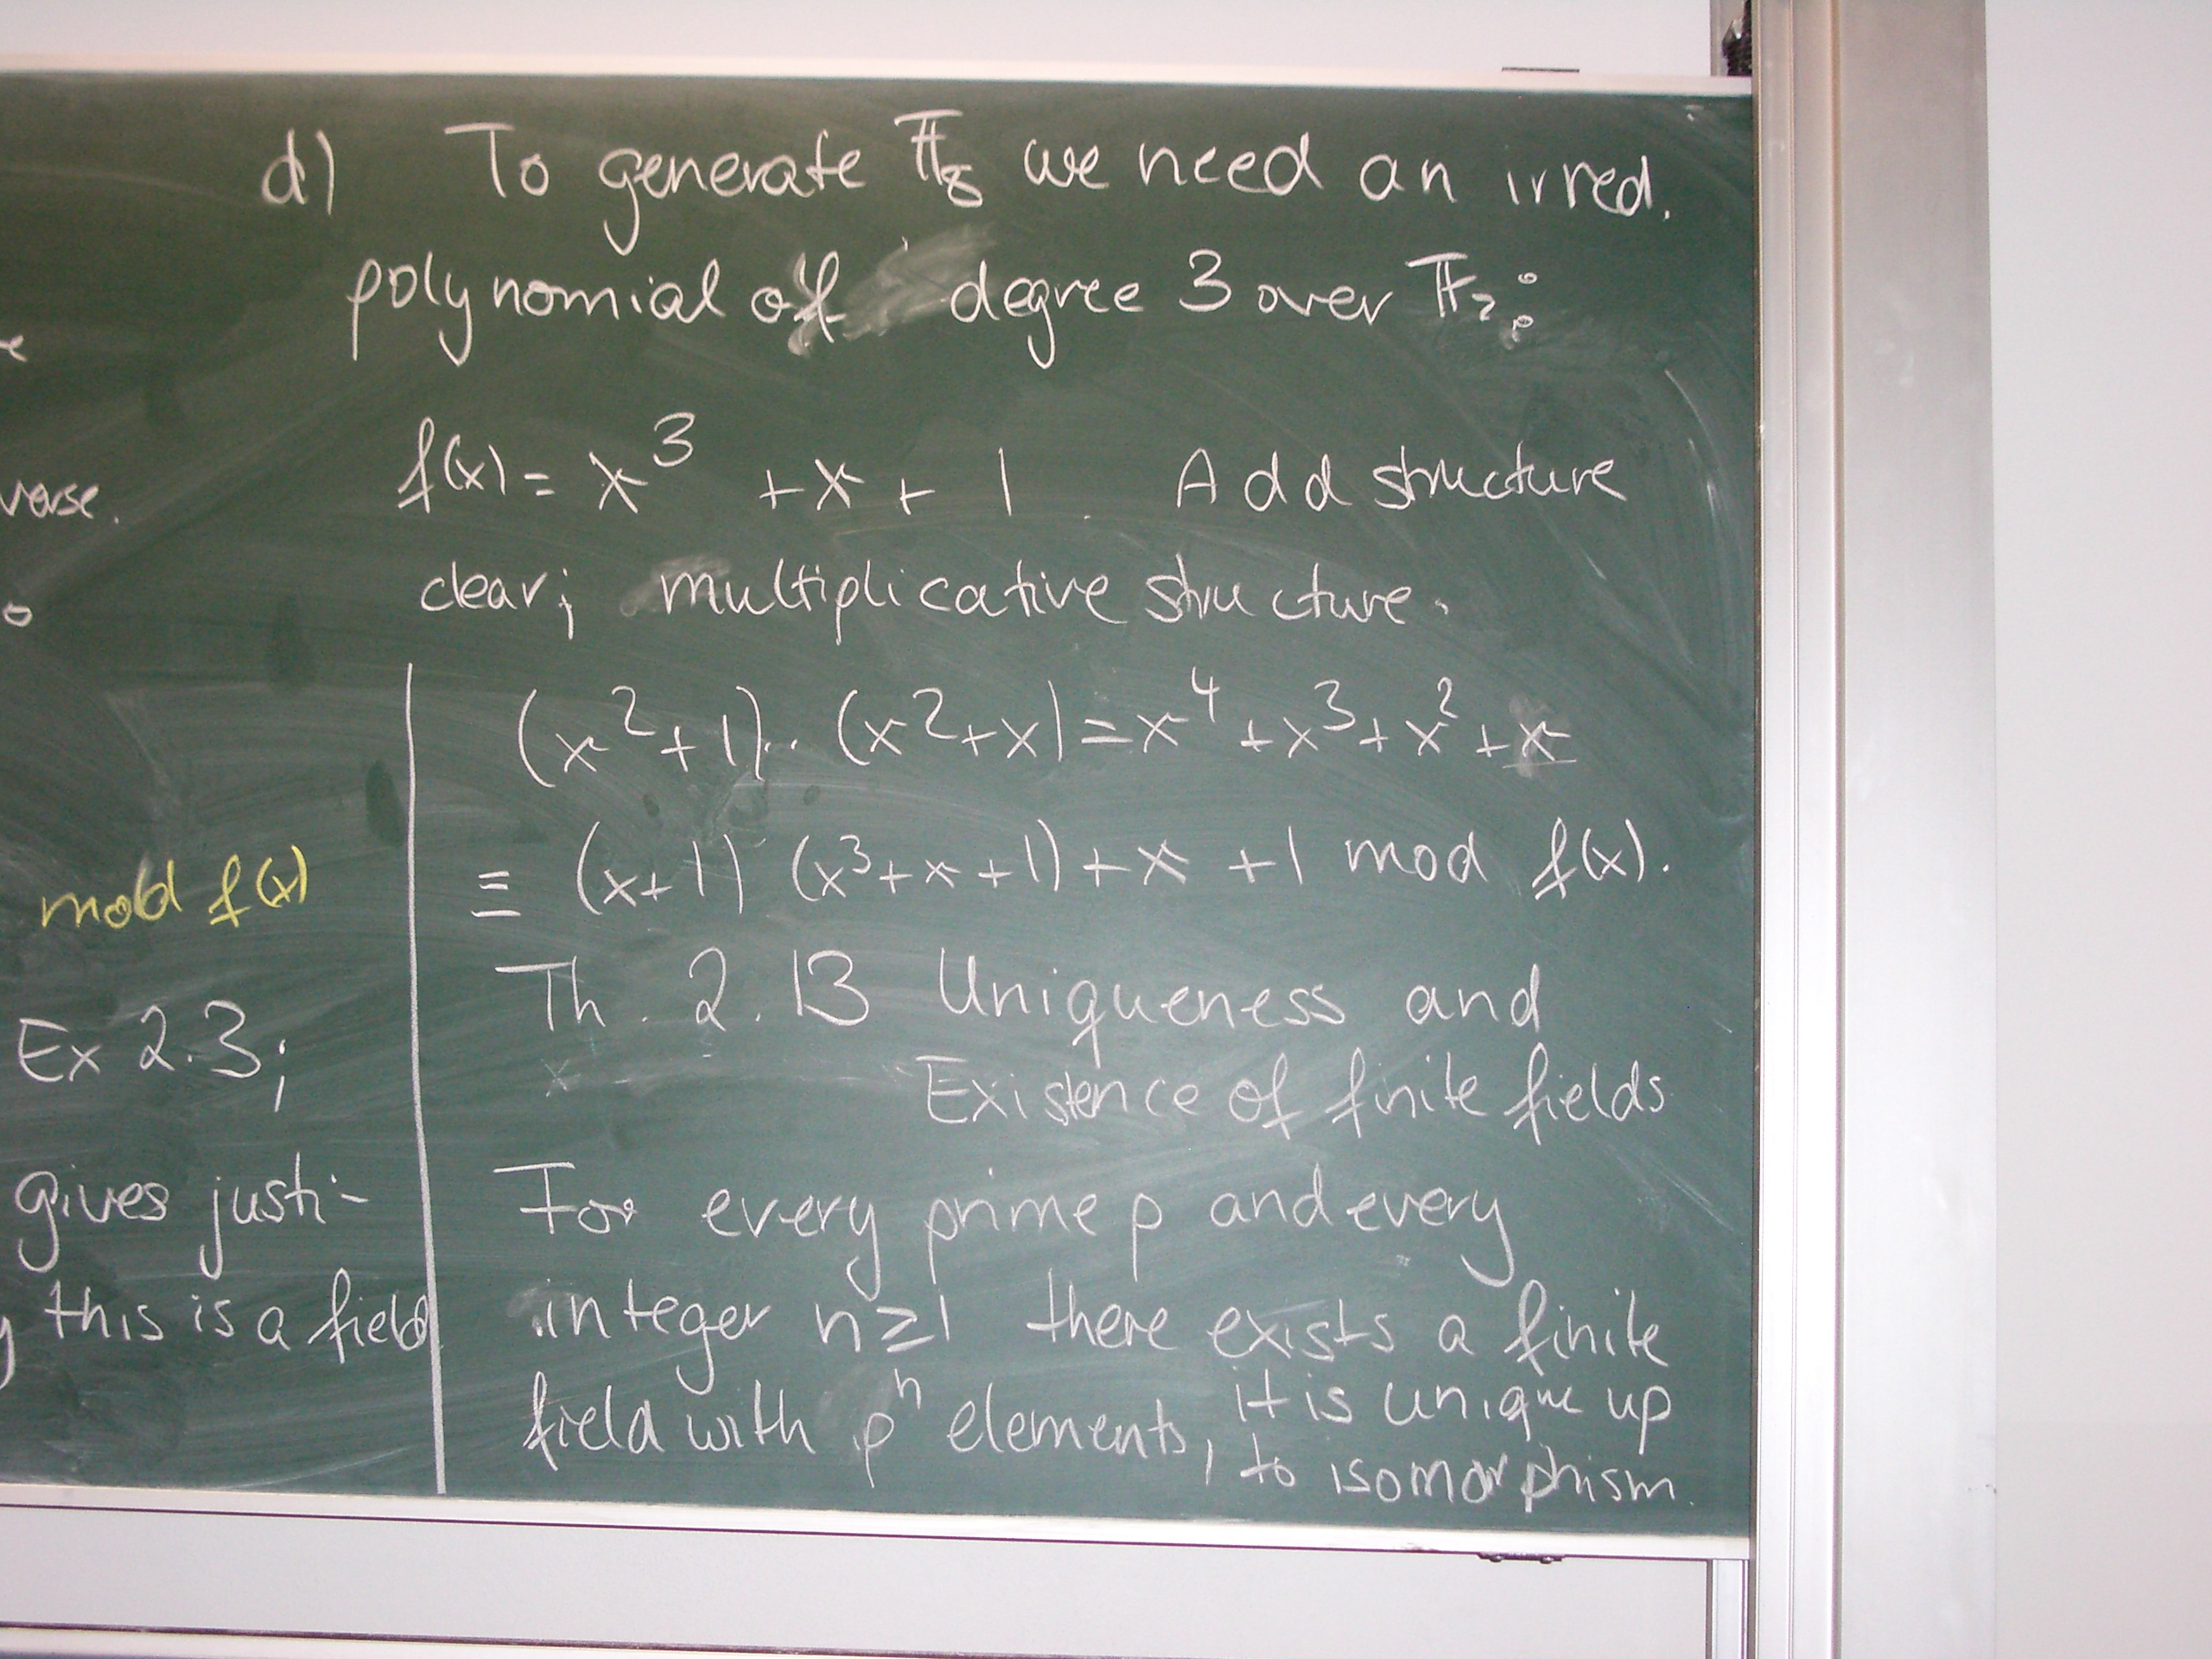 e
verse.
o
mod f(x)
Ex 2.3;
gives justi-
this is a field
d) To generate 𝔽₈ we need an irred.
polynomial of degree 3 over 𝔽₂:
f(x) = x³ + x + 1. Add structure
clear; multiplicative structure.
(x²+1)·(x²+x) = x⁴ + x³ + x² + x
≡ (x+1) (x³+x+1) + x + 1 mod f(x).
Th. 2.13 Uniqueness and
Existence of finite fields
For every prime p and every
integer n ≥ 1 there exists a finite
field with pⁿ elements, it is unique up
to isomorphism.